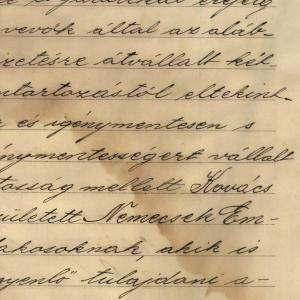 vevők által az aláb-
zetésre átvállalt két
ntartozástól eltekint-
r és igénymentesen s
nymentességért vállalt
tosság mellett Kovács
ületett Nemecsek Em-
lakosoknak, akik is
nyenlő" tulajdoni a-